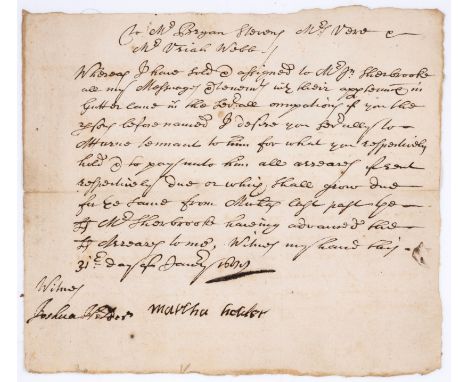 To Mr Bryan Stevens Mrs Vere &
Mr Uriah Webb //
Whereas I have sold & assigned to Mr Jn Sherbrooke
all my Messuages & tenemts wth their apptenncs in
Gutter Lane in the sevrall occupations of you the
psons before named I desire you sevrally to
Atturne tennant to him for what you respectively
hold & to pay unto him all arreares of rent
respectively due or which shall grow due
for ye same from last past ye
sd Mr Sherbrooke having advanced the
sd Arreares to me, Witnes my hand this
31th day of Janry
Witnes
Joshua martha